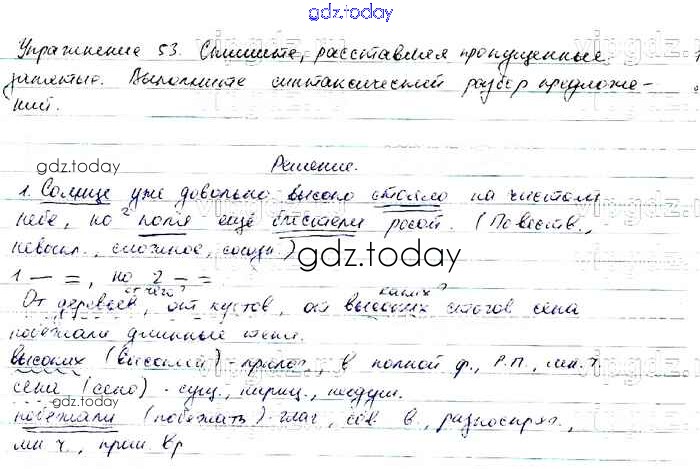 gdz.today
Упражнение 53. Спишите, расставляя пропущенные
запятые. Выполните синтаксический разбор предложе-
ний.
gdz.today
Решение.
1. Солнце уже довольно высоко стояло на чистом
небе, но ² поля ещё блестели росой. (Повеств.,
невоскл., сложное, союзн.)
gdz.today
1 — =, но 2 — =
от чего? каких?
От деревьев, от кустов, от высоких стогов сена
побежали длинные тени.
высоких (высокий) - прилаг., в полной ф., Р.П., мн. ч.
сена (сено) - сущ., нариц., неодуш.
побежали (побежать) - глаг., сов. в., разноспряг.,
мн. ч., прош. вр